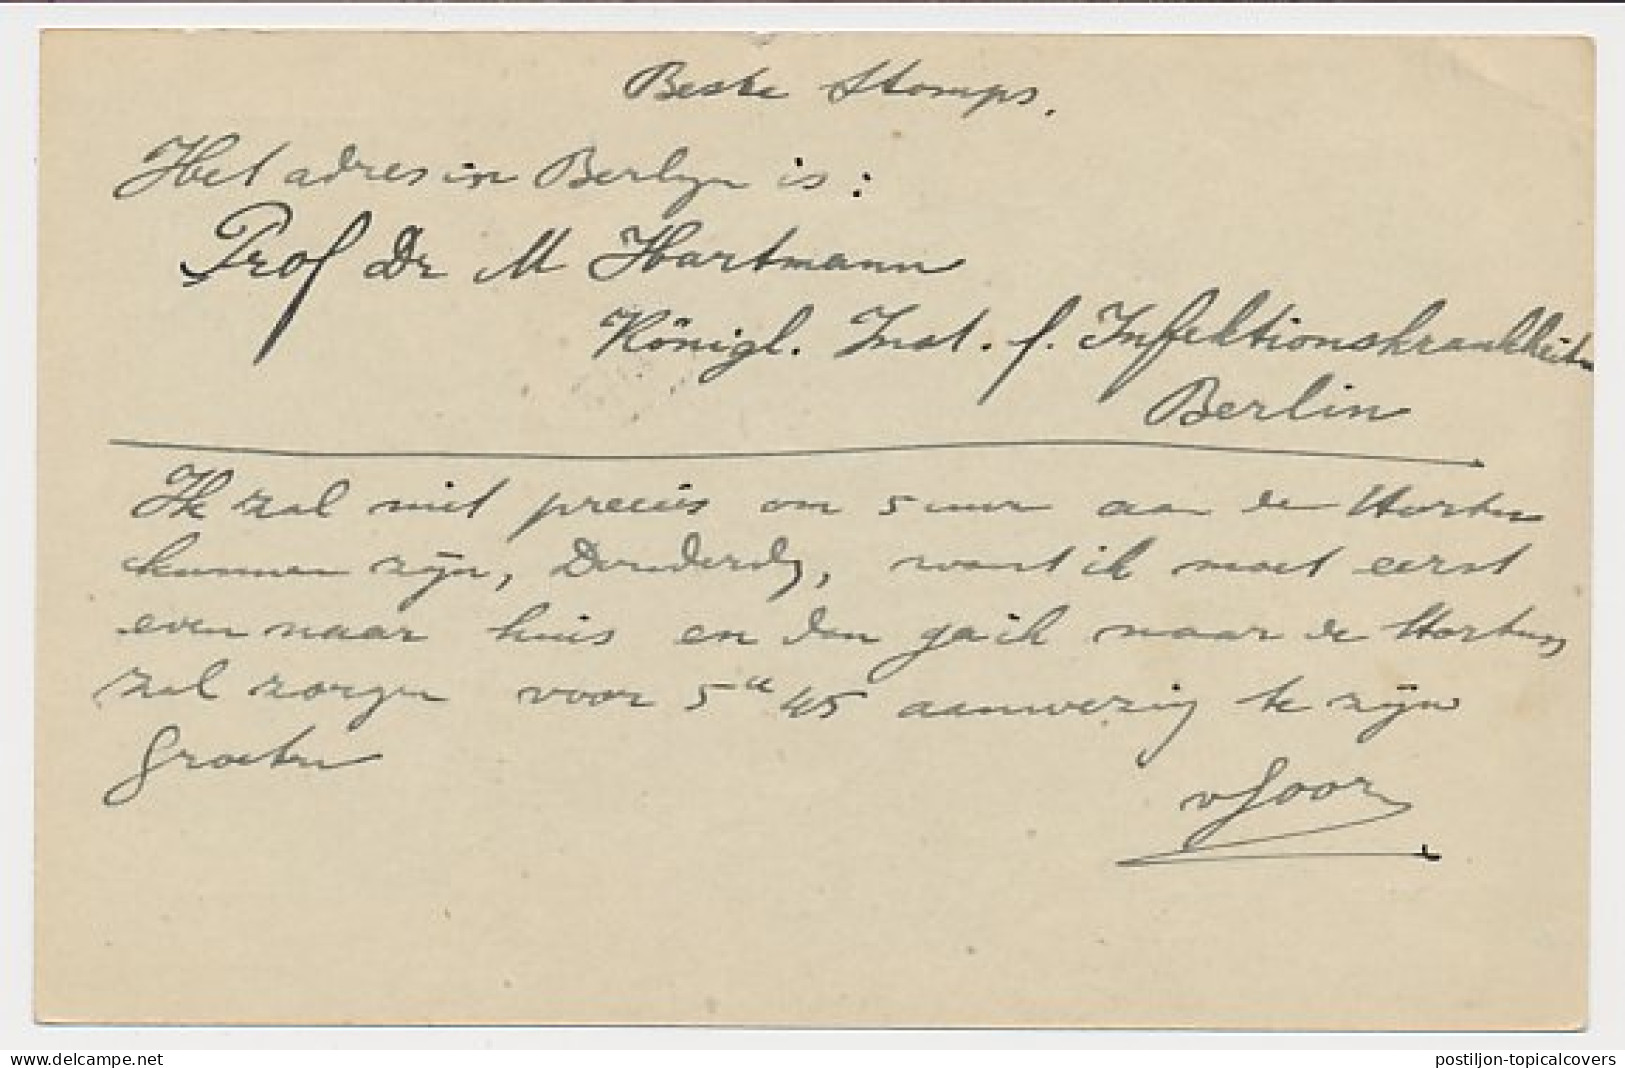 Beste Stomps.
Het adres in Berlijn is:
Prof Dr M Hartmann
Königl. Inst. f. Infektionskrankheiten
Berlin
Ik zal niet precies om 5 uur aan de Hortus
kunnen zijn, Donderdag, want ik moet eerst
even naar huis en dan ga ik naar de Hortus,
zal zorgen voor 5 u 45 aanwezig te zijn
Groeten
v Goor
www.delcampe.net
postiljon-topicalcovers